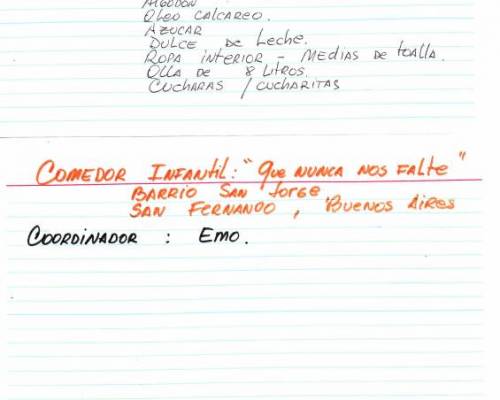 ALGODON
OLEO CALCAREO.
AZUCAR
DULCE DE LECHE.
ROPA INTERIOR - MEDIAS DE TOALLA.
OLLA DE 8 LITROS.
CUCHARAS / CUCHARITAS
COMEDOR INFANTIL: "QUE NUNCA NOS FALTE"
BARRIO SAN JORGE
SAN FERNANDO, BUENOS AIRES
COORDINADOR : EMO.